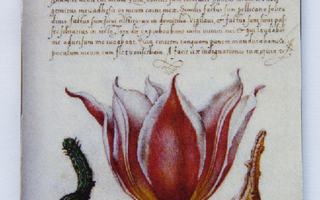 gemitus mei adhesit os meum carni meae. Similis factus sum pellicano solitu
dinis factus sum sicut nicticorax in domicilio. Vigilavi et factus sum sicut pas
ser solitarius in tecto. tota die exprobrabant mihi inimici mei et qui laudaba
nt me adversum me iurabant. Quia cinerem tanquam panem manducabam et
poculum meum cum fletu miscebam. A facie irae indignationis tuae